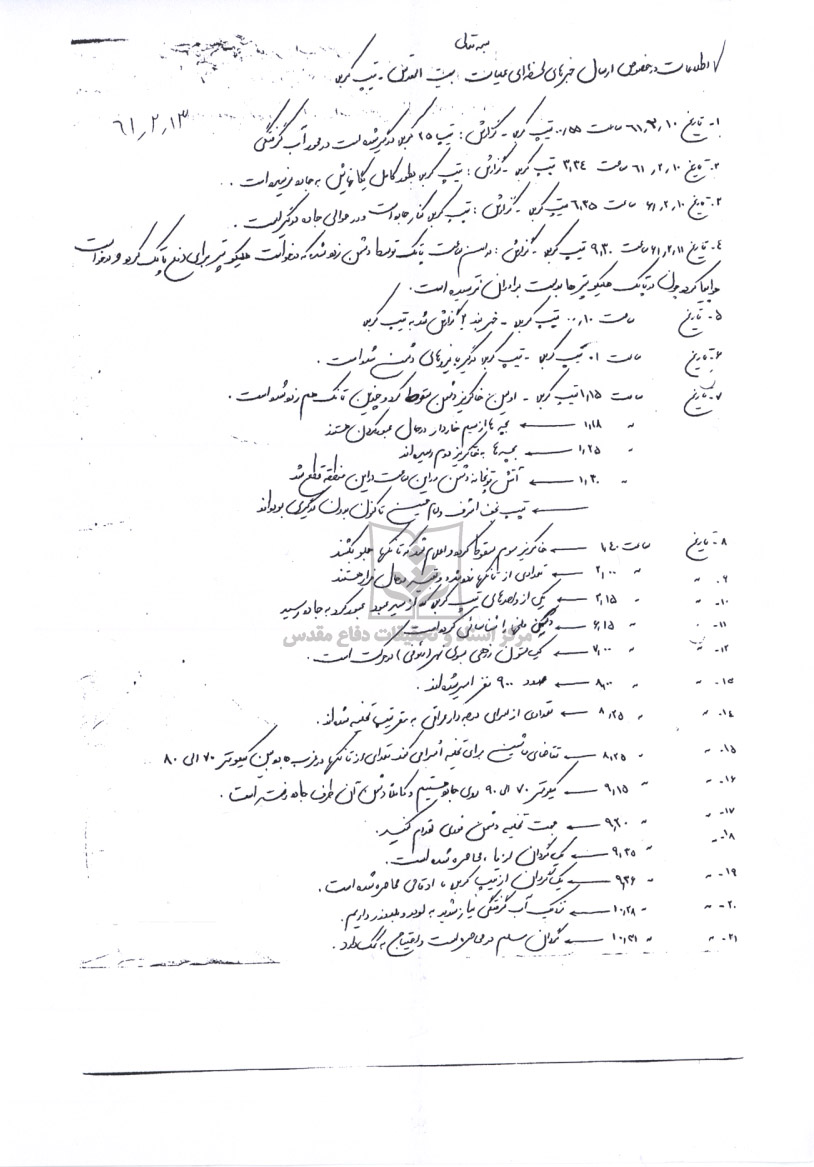 بسمه تعالی
اطلاعات در خصوص ارسال خبرهای لحظه‌ای عملیات بیت المقدس - تیپ کربلا
۶۱٫۲٫۱۳
۱- تاریخ ۶۱٫۲٫۱۰ ساعت ۰۰٫۵۵ تیپ کربلا - گزارش: تیپ ۲۵ کربلا درگیر شده است در محور آب گرفتگی
۲- تاریخ ۶۱٫۲٫۱۰ ساعت ۳٫۳۴ تیپ کربلا - گزارش: تیپ کربلا بطور کامل یگانهایش به جاده رسیده است.
۳- تاریخ ۶۱٫۲٫۱۰ ساعت ۶٫۳۵ تیپ کربلا - گزارش: تیپ کربلا کنار جاده است و در حوالی جاده درگیر است.
۴- تاریخ ۶۱٫۲٫۱۱ ساعت ۹٫۳۰ تیپ کربلا - گزارش: در این ساعت پاتک توسط دشمن زده شد که درخواست هلیکوپتر برای دفع پاتک کرد و درخواست
هواپیما کرده چون در پاتک هلیکوپترها بدست برادران نرسیده است.
۵- تاریخ ساعت ۰۰٫۱۰ تیپ کربلا - خبر بند ۲ گزارش شد به تیپ کربلا
۶- تاریخ ساعت ۰۱ تیپ کربلا - تیپ کربلا درگیر با نیروهای دشمن شده است.
۷- تاریخ ساعت ۱٫۱۵ تیپ کربلا - اولین خاکریز دشمن سقوط کرد و چندین تانک هم زده شده است.
" ۱٫۱۸ ← بچه‌ها از سیم خاردار در حال عبور کردن هستند
" ۱٫۲۵ ← بچه‌ها به خاکریز دوم رسیده‌اند
" ۱٫۳۰ ← آتش توپخانه دشمن در این ساعت در این منطقه قطع شد
← تیپ نجف اشرف و امام حسین تاکنون بدون درگیری بوده‌اند
۸- تاریخ ساعت ۱٫۴۰ ← خاکریز سوم سقوط کرده و اعلام شد که تانکها جلو بکشند
۹- " " ۲٫۰۰ ← تعدادی از تانکها زده شده و بقیه در حال فرار هستند
۱۰- " " ۲٫۱۵ ← یکی از واحدهای تیپ کربلا که از مسیر خود عبور کرد به جاده رسید
۱۱- " " ۶٫۱۵ ← دشمن ما را شناسائی کرده است
۱۲- " " ۷٫۰۰ ← یک ستون زرهی در حرکت است.
۱۳- " " ۸٫۰۰ ← حدود ۹۰۰ نفر اسیر شده‌اند.
۱۴- " " ۸٫۲۵ ← تعدادی از اسرای درجه‌دار عراقی به مقر تیپ تخلیه شده‌اند.
۱۵- " " ۸٫۲۵ ← تقاضای ماشین برای تخلیه اسرا می‌کند تعدادی از تانکها در غرب جاده بین کیلومتر ۷۰ الی ۸۰
۱۶- " " ۹٫۱۵ ← کیلومتر ۷۰ الی ۹۰ روی جاده هستیم و کاملاً دشمن آن طرف جاده رفته است.
۱۷- " " ۹٫۲۰ ← جهت تخلیه دشمن فوری اقدام کنید.
۱۸- " " ۹٫۲۵ ← یک گردان محاصره شده است.
۱۹- " " ۹٫۳۶ ← یک گردان از تیپ کربلا محاصره شده است.
۲۰- " " ۱۰٫۲۸ ← نزدیک آب گرفتگی نیاز شدید به لودر و بلدوزر داریم.
۲۱- " " ۱۰٫۳۱ ← گردان مسلم در محاصره است و احتیاج به کمک دارد.
مرکز اسناد و تحقیقات دفاع مقدس